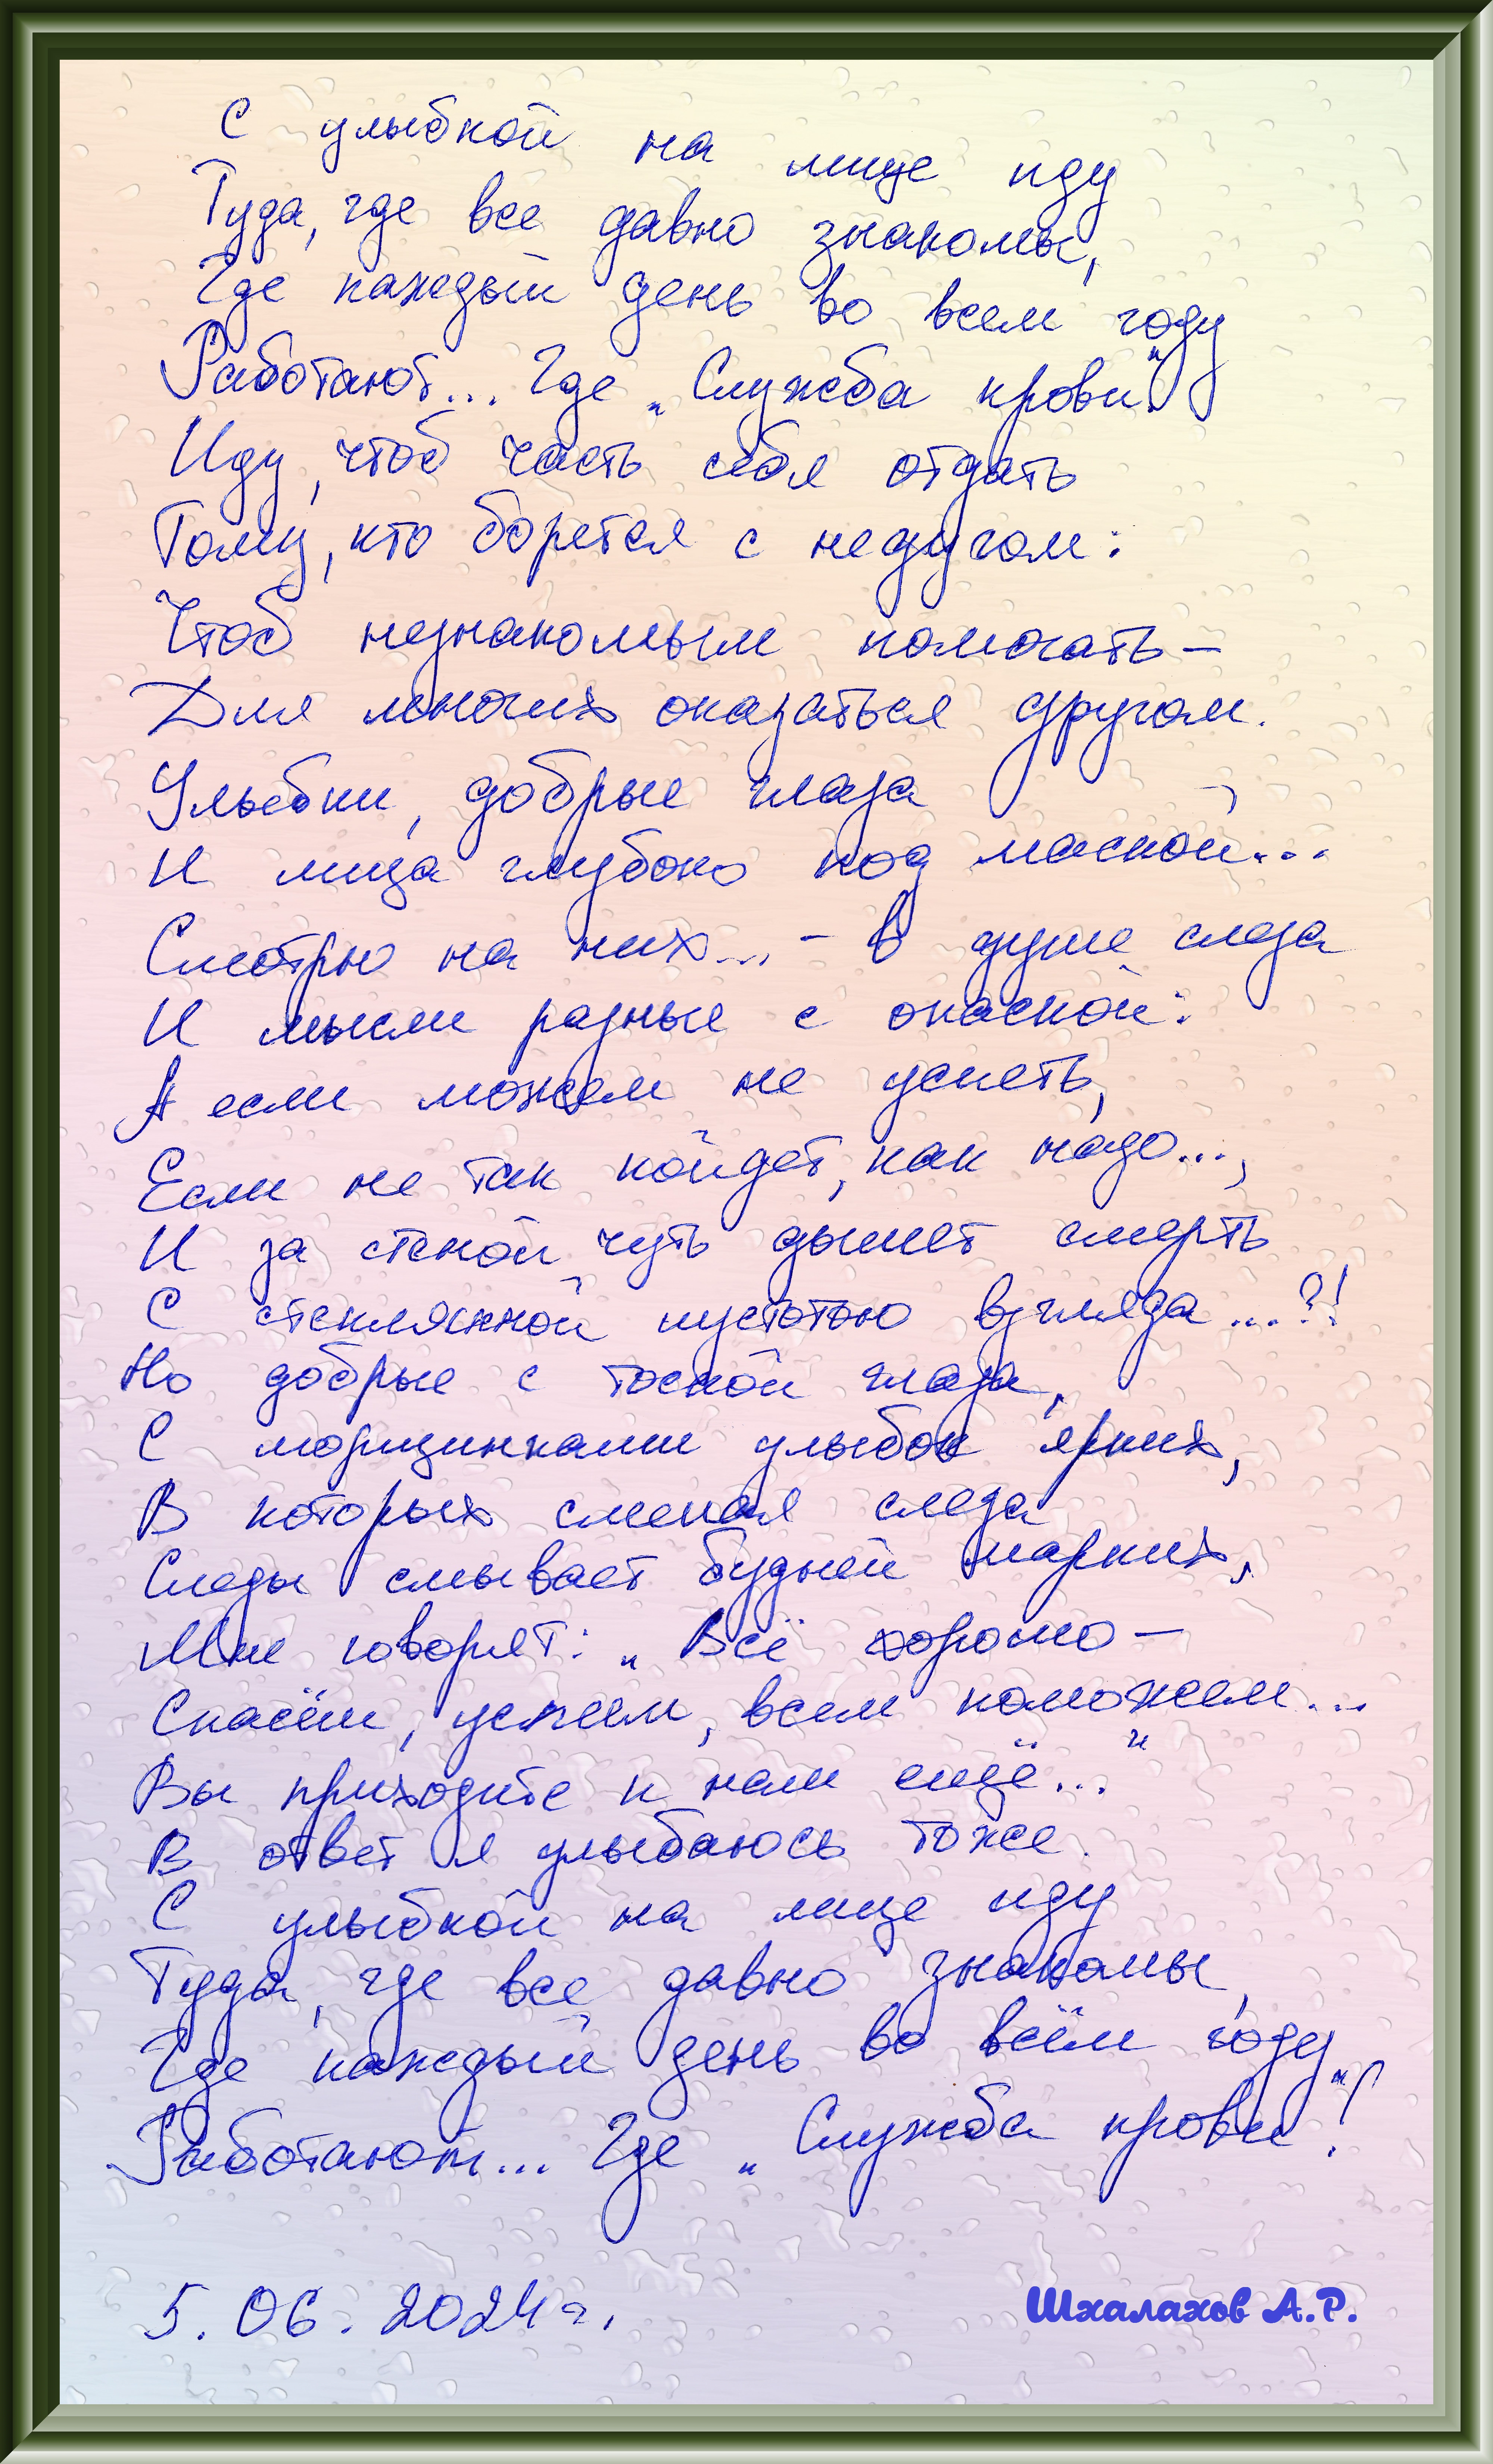 С улыбкой на лице иду
Туда, где все давно знакомы,
Где каждый день во всем году
Работают... Где „Служба крови".
Иду, чтоб часть себя отдать
Тому, кто борется с недугом:
Чтоб незнакомым помогать –
Для многих оказаться другом.
Улыбки, добрые глаза
И лица глубоко под маской...
Смотрю на них... – в душе слеза
И мысли разные с опаской:
А если можем не успеть,
Если не так пойдет, как надо...,
И за стеной чуть дышет смерть
С стеклянной пустотою взгляда...?!
Но добрые с тоской глаза,
С морщинками улыбок ярких,
В которых смелая слеза
Следы смывает будней жарких,
Мне говорят: „Всё хорошо –
Спасём, успеем, всем поможем...
Вы приходите к нам ещё..."
В ответ я улыбаюсь тоже.
С улыбкой на лице иду
Туда, где все давно знакомы,
Где каждый день во всём году
Работают... Где „Служба крови"!
5.06.2024г.
Шхалахов А.Р.